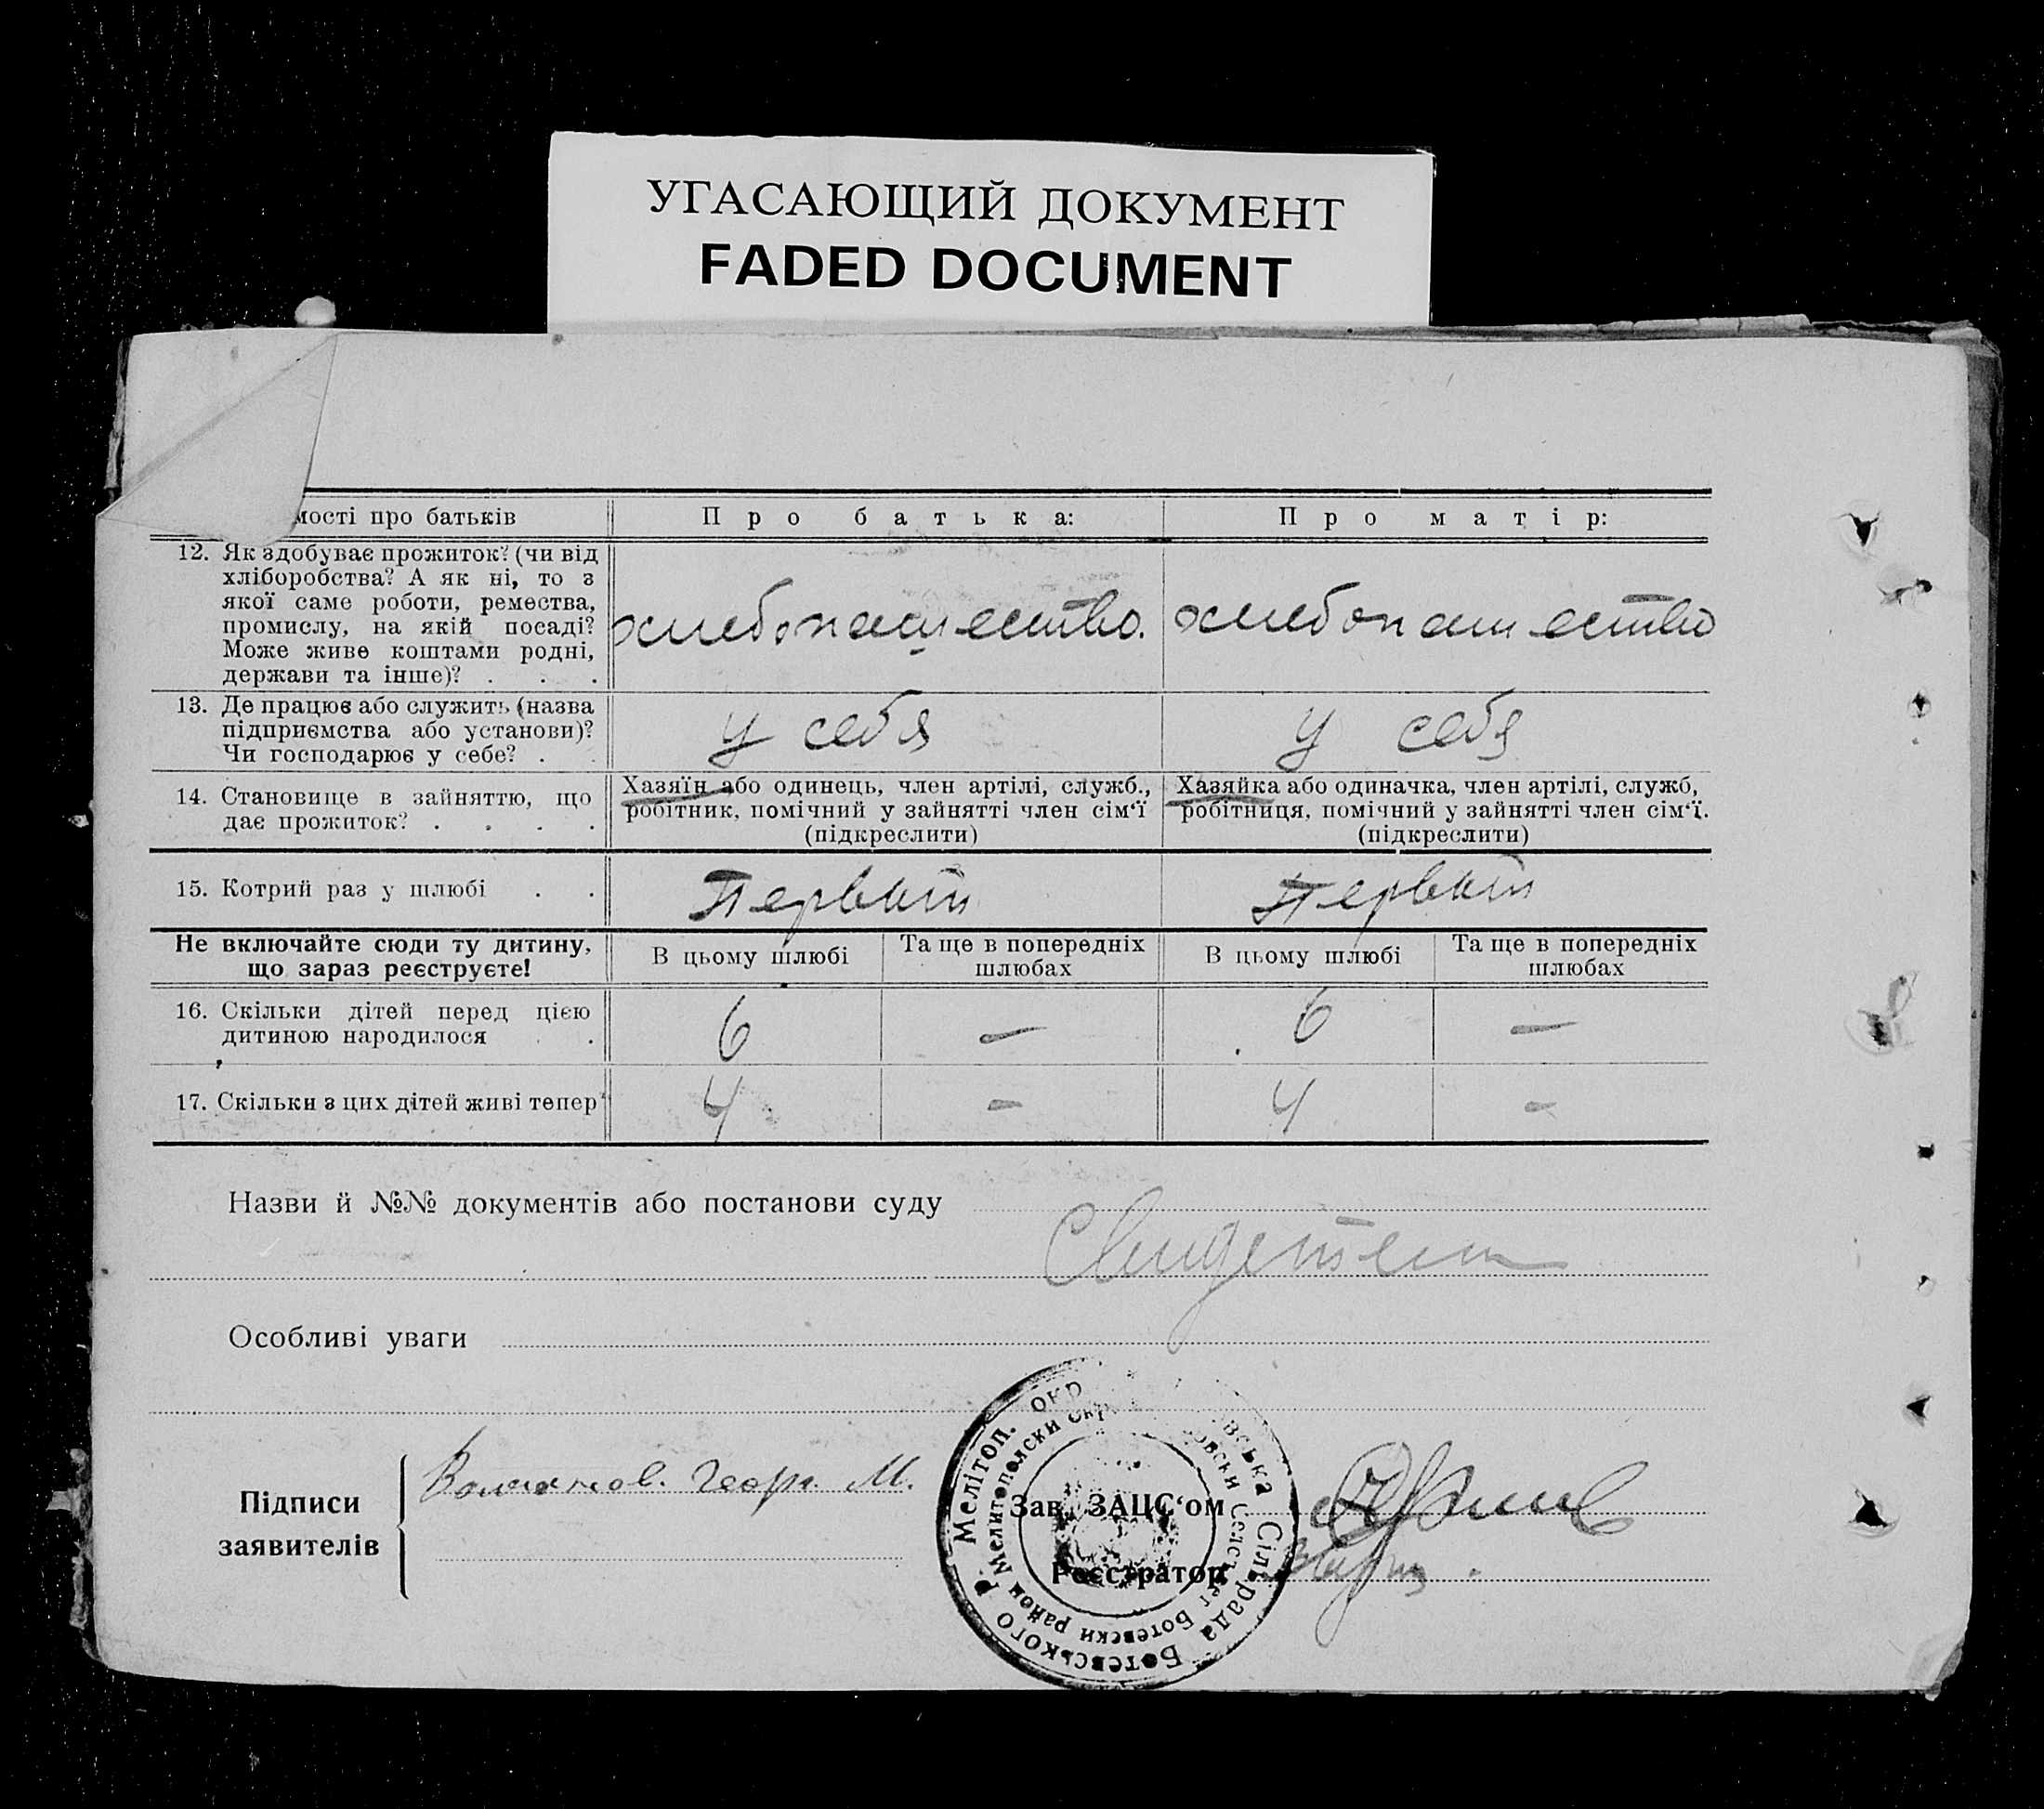 УГАСАЮЩИЙ ДОКУМЕНТ
FADED DOCUMENT
мості про батьків
Про батька:
Про матір:
12. Як здобуває прожиток? (чи від
хліборобства? А як ні, то з
якої саме роботи, ремества,
промислу, на якій посаді?
Може живе коштами родні,
держави та інше)? . . .
хлебопашество.
хлебопашество
13. Де працює або служить (назва
підприємства або установи)?
Чи господарює у себе? . .
у себя
у себя
14. Становище в зайняттю, що
дає прожиток? . . . .
Хазяїн або одинець, член артілі, служб.,
робітник, помічний у зайнятті член сім‘ї
(підкреслити)
Хазяйка або одиначка, член артілі, служб,
робітниця, помічний у зайнятті член сім‘ї.
(підкреслити)
15. Котрий раз у шлюбі . .
Первый
Первый
Не включайте сюди ту дитину,
що зараз реєструєте!
В цьому шлюбі
Та ще в попередніх
шлюбах
В цьому шлюбі
Та ще в попередніх
шлюбах
16. Скільки дітей перед цією
дитиною народилося . .
6
—
6
—
17. Скільки з цих дітей живі тепер?
4
-
4
-
Назви й №№ документів або постанови суду
Свидетели
Особливі уваги
Підписи
заявителів
Геор. М.
Зав. ЗАЦС‘ом
Реєстратор
Сільрада Ботевського Р. Мелітоп. ОКР
Ботевски район Мелитополски Окр